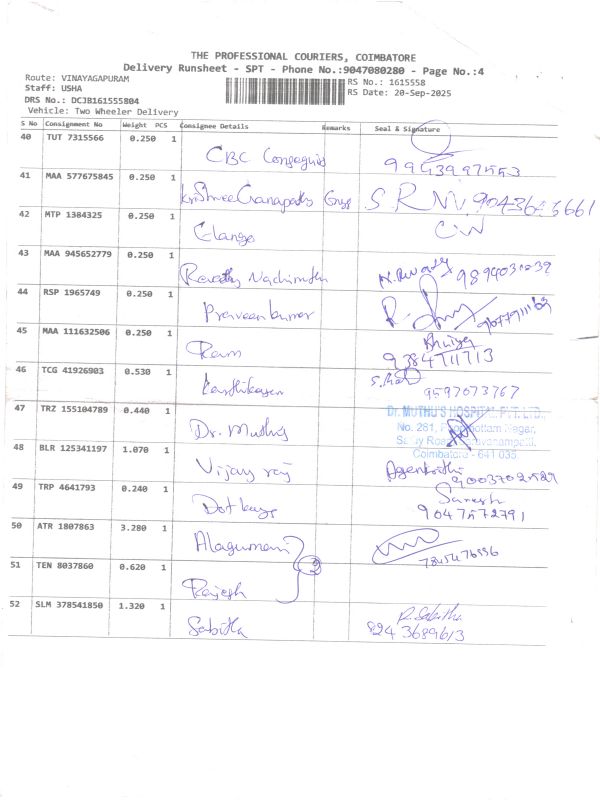 THE PROFESSIONAL COURIERS, COIMBATORE
Delivery Runsheet - SPT - Phone No.:9047080280 - Page No.:4
Route: VINAYAGAPURAM
RS No.: 1615558
Staff: USHA
RS Date: 20-Sep-2025
DRS No.: DCJB161555804
Vehicle: Two Wheeler Delivery
S No Consignment No Weight PCS Consignee Details Remarks Seal & Signature
40 TUT 7315566 0.250 1
CBC
41 MAA 577675845 0.250 1
42 MTP 1384325 0.250 1
Elango
43 MAA 945652779 0.250 1
Revathy Nachimuthu
44 RSP 1965749 0.250 1
Praveen kumar
45 MAA 111632506 0.250 1
Ram
9384711713
46 TCG 41926903 0.530 1
Karthikeyan 9597073767
47 TRZ 155104789 0.440 1
Dr. Muthus
Dr. MUTHU'S HOSPITAL PVT. LTD.,
No. 281, Nagar,
Coimbatore - 641 035.
48 BLR 125341197 1.070 1
Vijay raj
49 TRP 4641793 0.240 1
Suresh
9047572791
50 ATR 1807863 3.280 1
Alagumani
51 TEN 8037860 0.620 1
2
Rajesh
52 SLM 378541850 1.320 1
Sabitha
R. Sabitha
8243689613